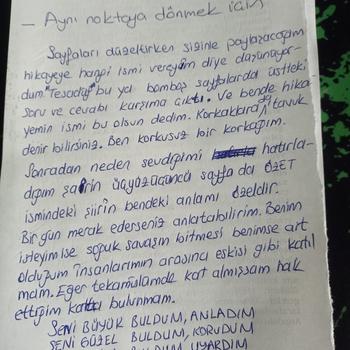 — Aynı noktaya dönmek için
Sayfaları düzeltirken sizinle paylaşacağım
hikayeye hangi ismi vereyim diye düşünüyor-
dum "Tesadüf" bu ya bomboş sayfalarda üstteki
soru ve cevabı karşıma çıktı. Ve bende hika
yemin ismi bu olsun dedim. Korkaklara da tavuk
denir bilirsiniz. Ben korkusuz bir korkağım.
Sonradan neden sevdiğimi hatırla-
dığım şairin üçyüzüncü sayfada ÖZET
ismindeki şiirin bendeki anlamı özeldir.
Bir gün merak ederseniz anlatabilirim. Benim
isteyimse soğuk savaşın bitmesi benimse ait
olduğum insanlarımın arasına eskisi gibi katıl
mam. Eğer tekamülümde kat almışsam hak
ettiğim katta bulunmam.
SENİ BÜYÜK BULDUM, ANLADIM
SENİ GÜZEL BULDUM, KORUDUM
BULDUM, UYARDIM